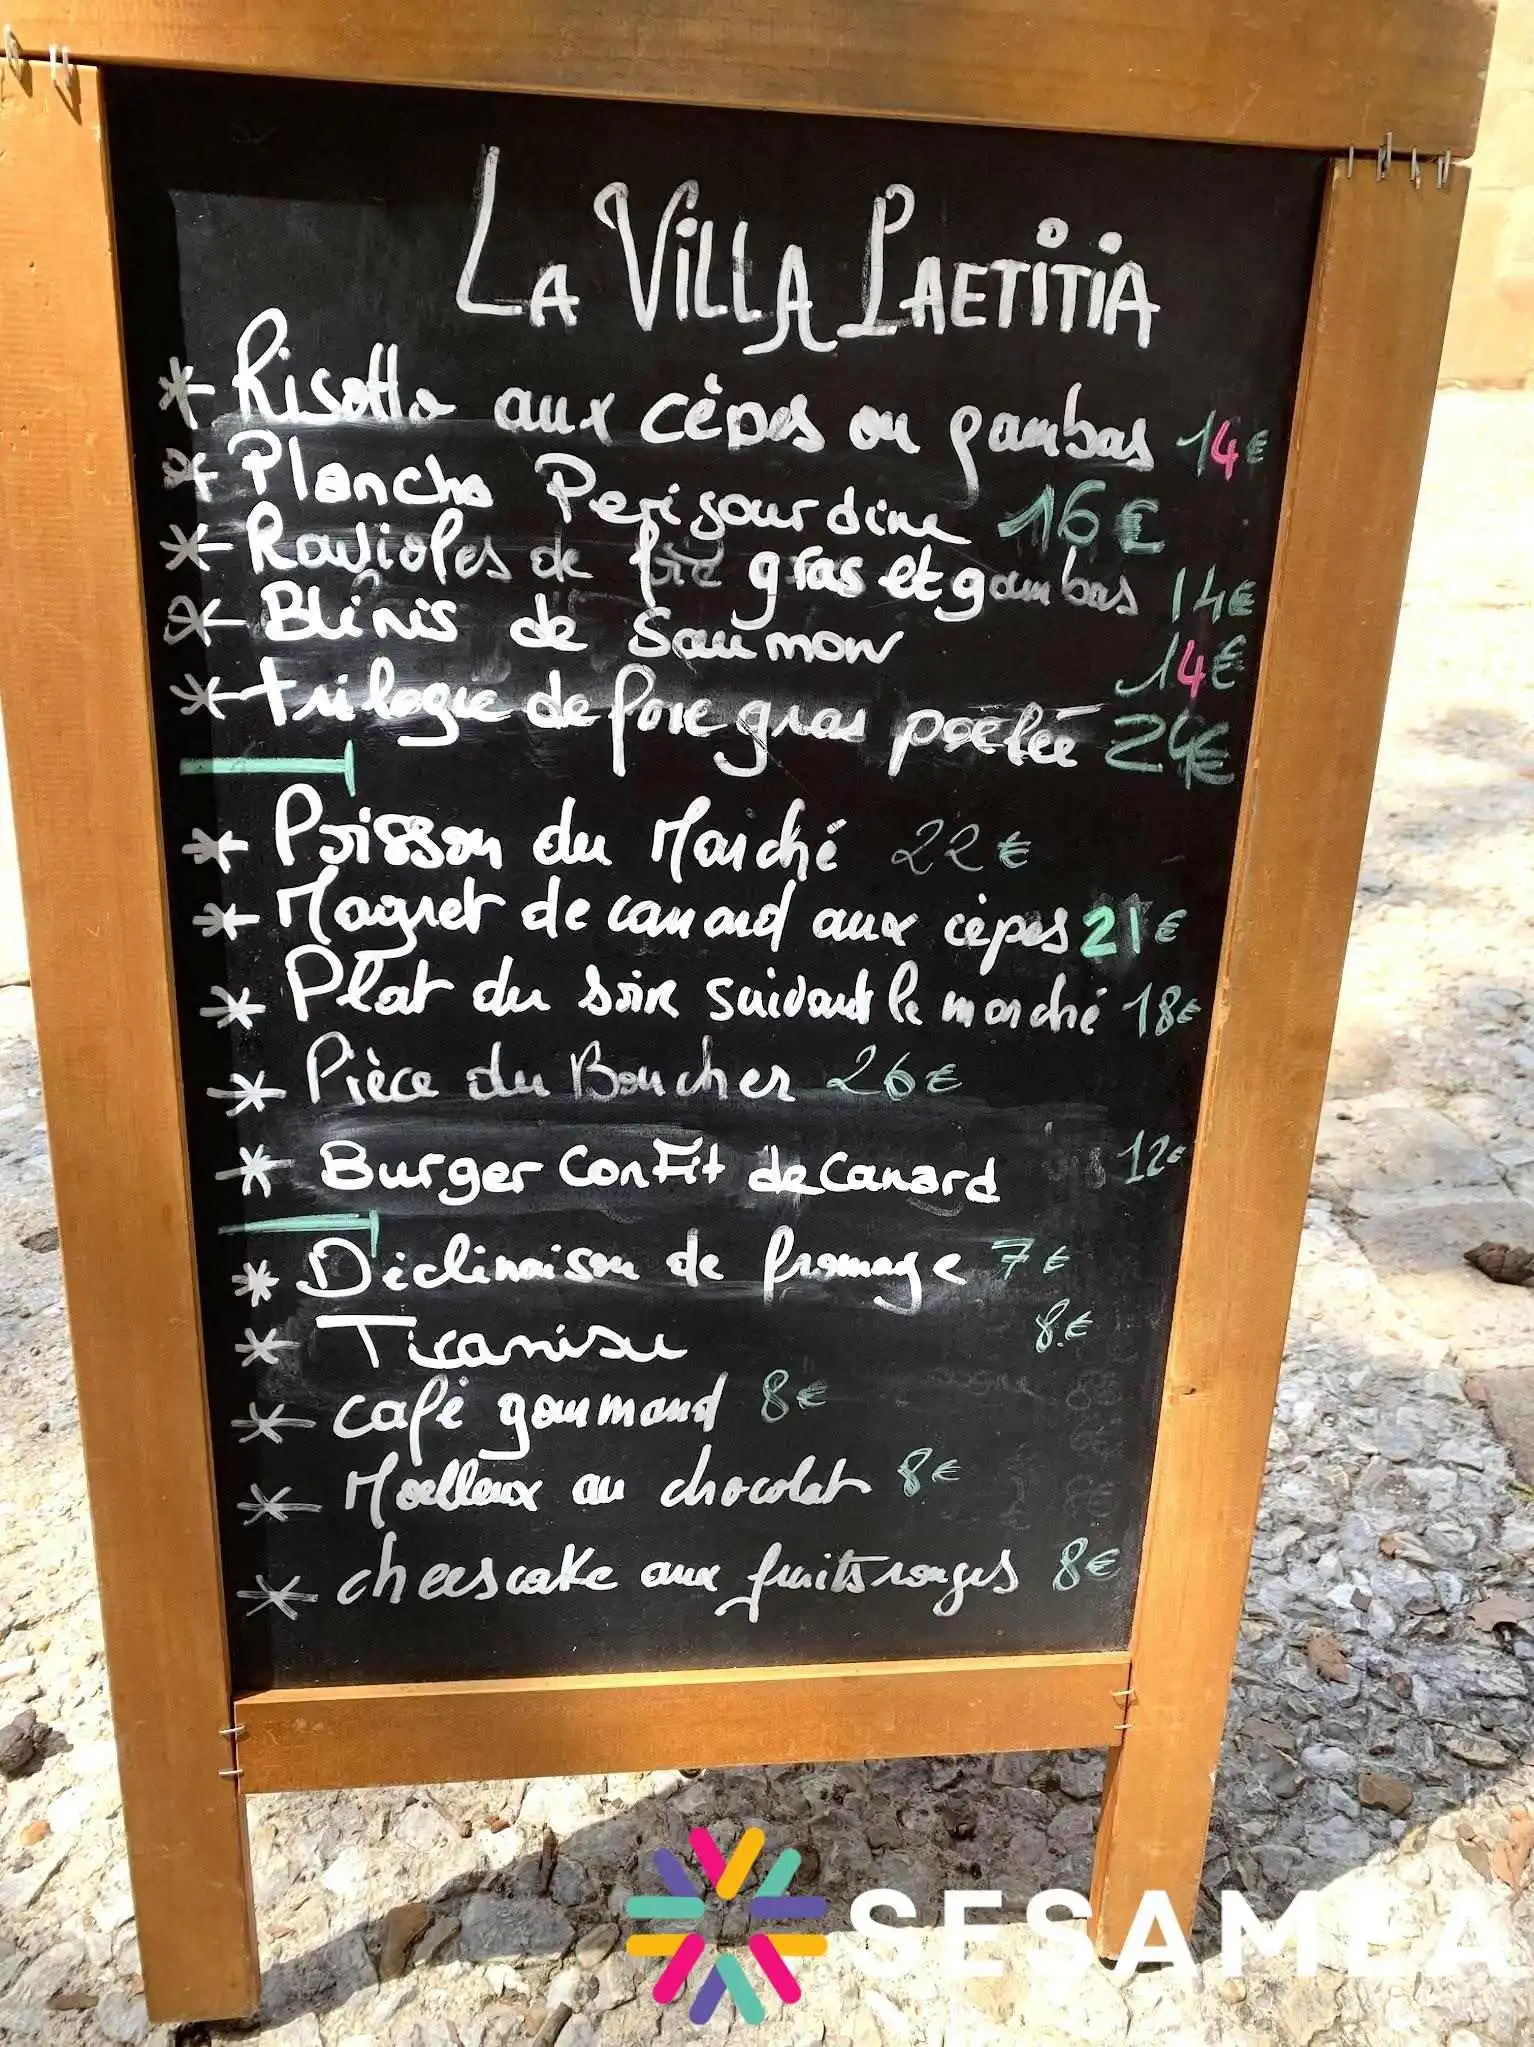 LA VILLA LAETITIA
* Risotto aux cèpes ou gambas 14€
* Plancha Perigourdine 16€
* Ravioles de foie gras et gambas 14€
* Blinis de Saumon 14€
* trilogie de foie gras poelée 24€
* Poisson du Marché 22€
* Magret de canard aux cèpes 21€
* Plat du soir suivant le marché 18€
* Pièce du Boucher 26€
* Burger Confit de Canard 12€
* Déclinaison de fromage 7€
* Tiramisu 8€
* café gourmand 8€
* Moelleux au chocolat 8€
* cheescake aux fruits rouges 8€
SESAMEA